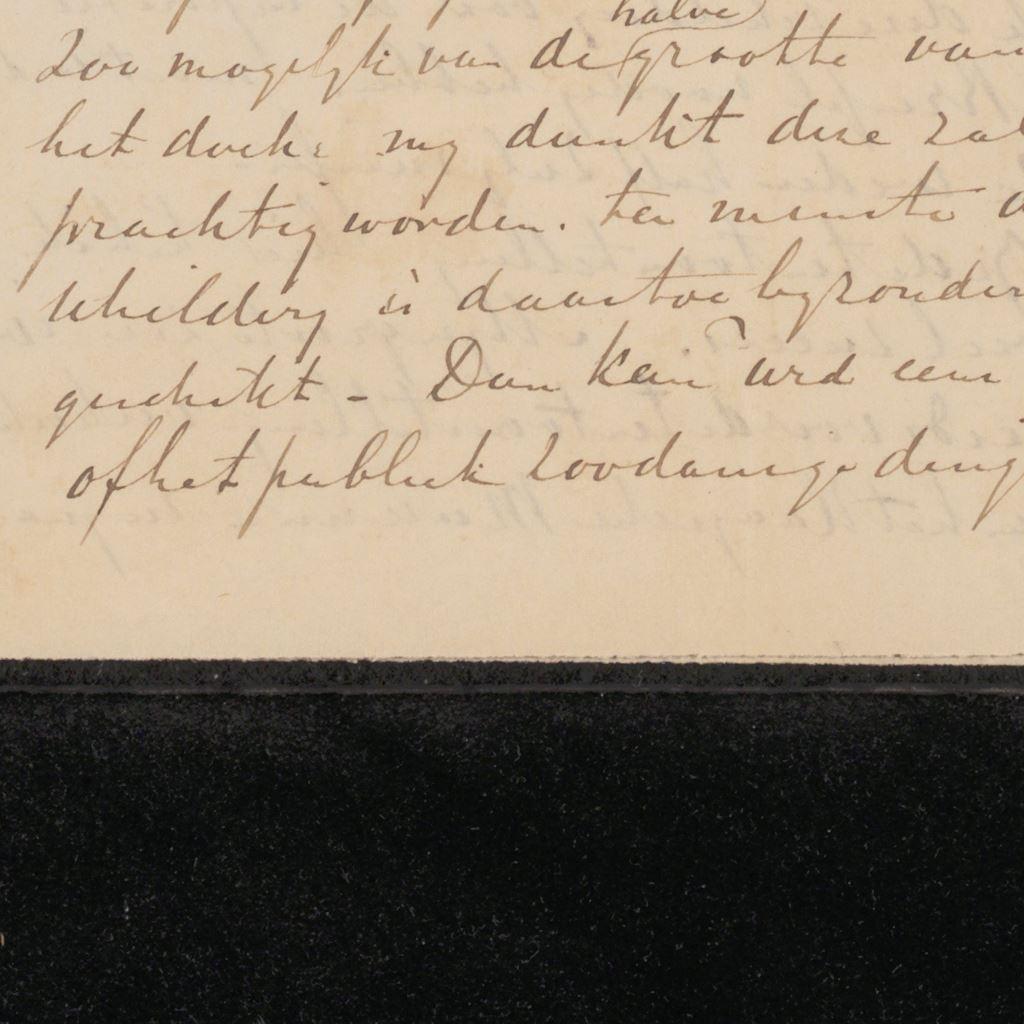 halve
Zoo mogelijk van de grootte van
het doek: mij dunkt deze zal
prachtig worden. ten minste
schilderij is daartoe bijzonder
geschikt - Dan kan
of het publiek zoodanige ding